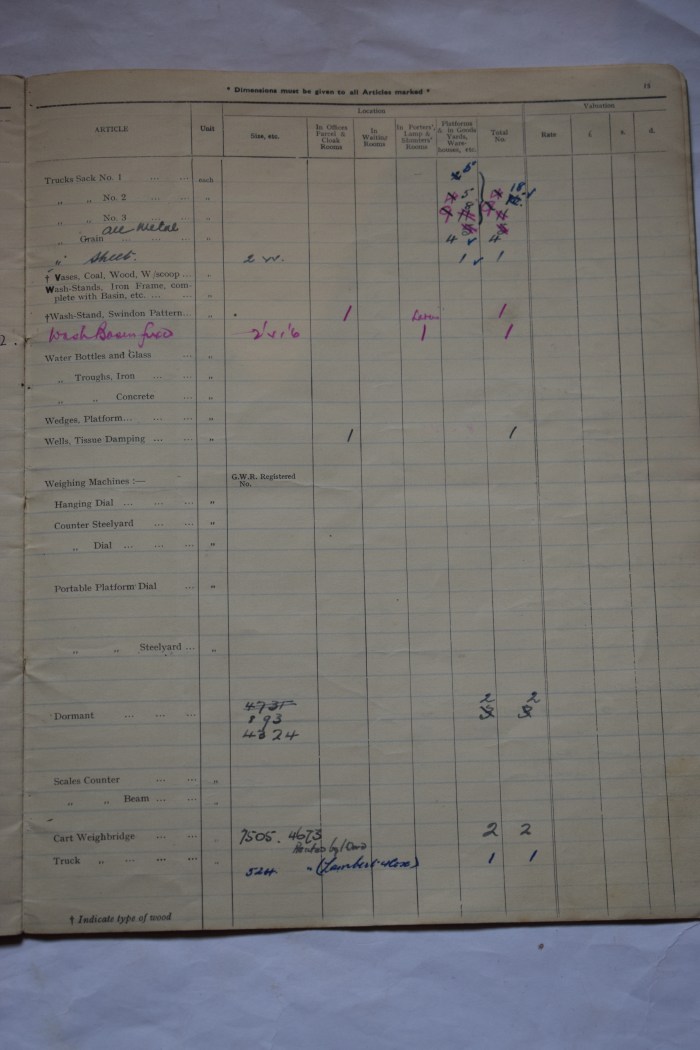 * Dimensions must be given to all Articles marked *
15
ARTICLE Unit Size, etc. Location Valuation
In Offices Parcel & Cloak Rooms In Waiting Rooms In Porters', Lamp & Shunters' Rooms Platforms & in Goods Yards, Ware-houses, etc. Total No. Rate £ s. d.
Trucks Sack No. 1 ... ... each
„ „ No. 2 ... „ 5
„ „ No. 3 ... „
all metal
„ Grain ... ... ... „ 4 4
„ Sheet. 2 W. 1 1
† Vases, Coal, Wood, W/scoop ... „
Wash-Stands, Iron Frame, com-
plete with Basin, etc. ... ... „
†Wash-Stand, Swindon Pattern... „ 1 1
Wash Basin fixed 2' x 1'6 1 1
2.
Water Bottles and Glass ... „
„ Troughs, Iron ... „
„ „ Concrete ... „
Wedges, Platform... ... ... „
Wells, Tissue Damping ... ... „ 1 1
Weighing Machines :— G.W.R. Registered
No.
Hanging Dial ... ... ... „
Counter Steelyard ... ... „
„ Dial ... ... ... „
Portable Platform Dial ... „
„ „ Steelyard ... „
4735 2 2
Dormant ... ... ... 893
4324
Scales Counter ... ... „
„ „ Beam ... ... „
Cart Weighbridge ... ... „ 7505. 4673 2 2
Truck „ ... ... ... „ 1 1
524
† Indicate type of wood